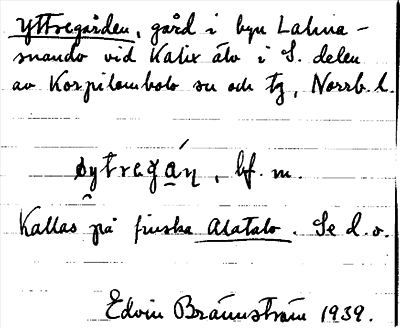 Yttregården, gård i byn Lahna-
suando vid Kalix älv i S. delen
av Korpilombolo sn och tg, Norrb. l.
øy̑tregán, bf. m.
Kallas på finska Alatalo. Se d. o.
Edvin Brännström 1939.